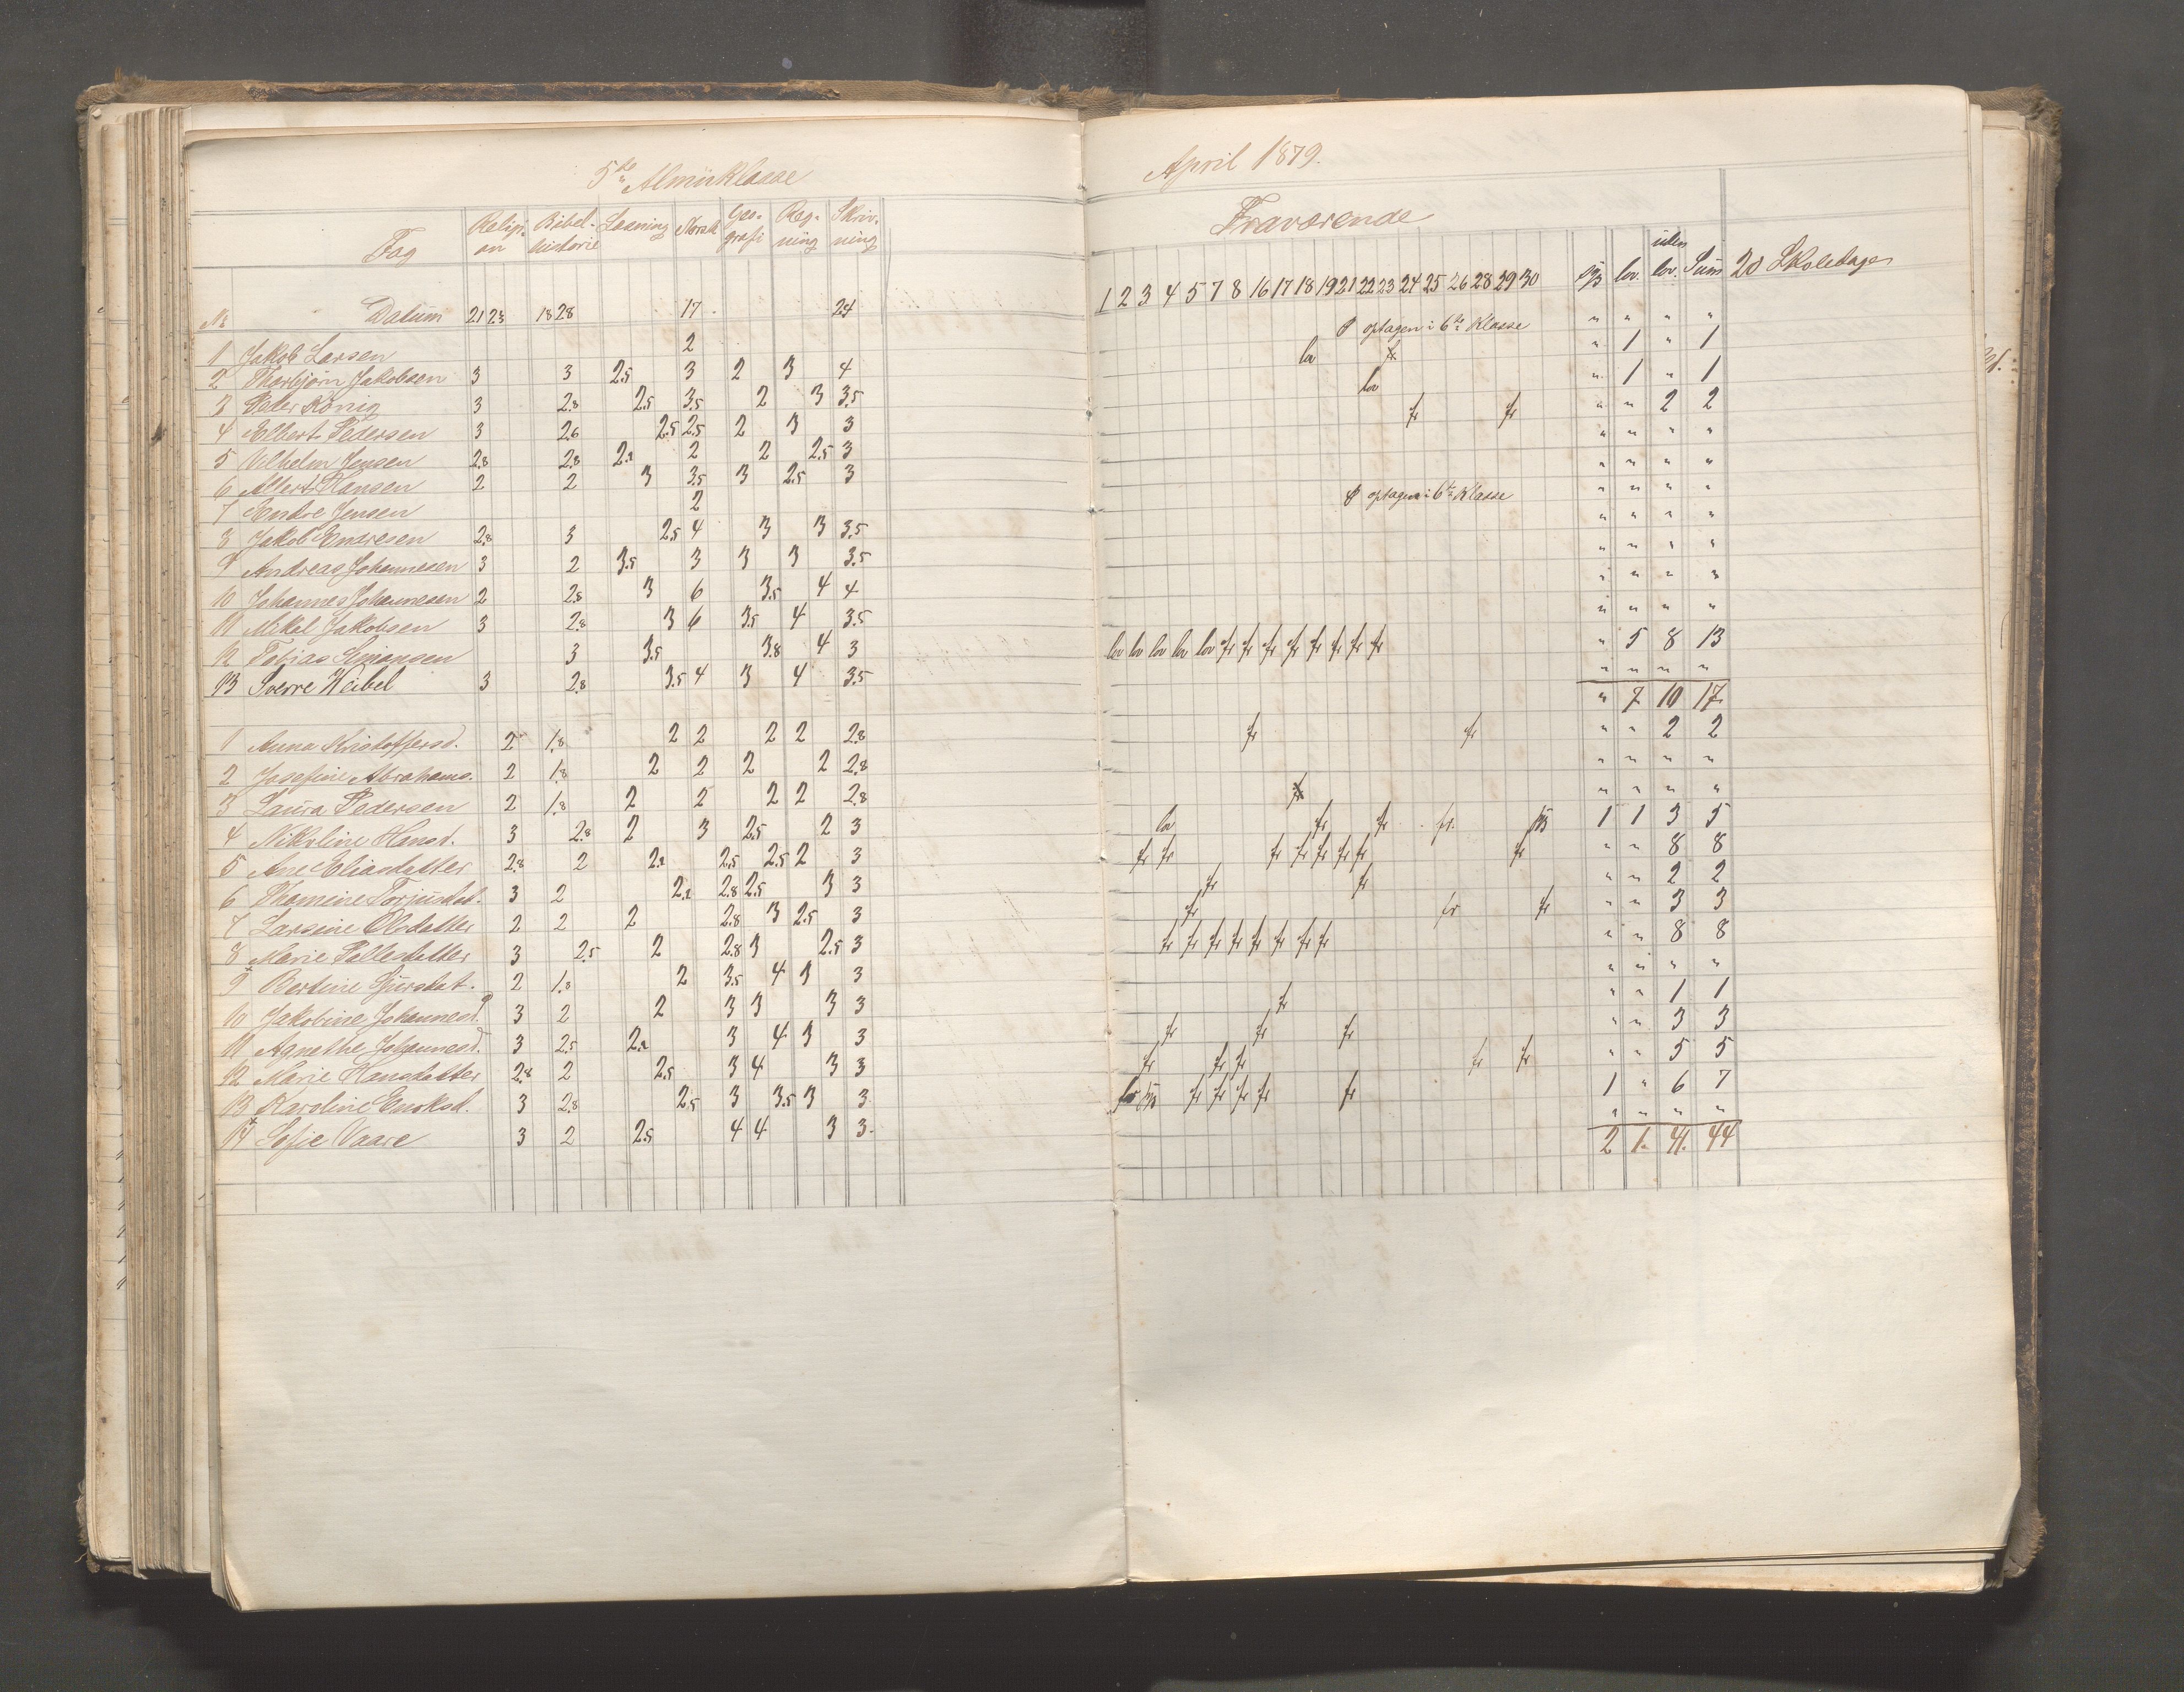 5te Almueklasse
Fag Religion Bibelhistorie Læsning Norsk Geografi Regning Skrivning
No Datum 21 23 18 28 17 24
1 Jakob Larsen 2
2 Thorbjørn Jakobsen 3 3 2.5 3 2 3 4
3 Peder König 3 2.8 2.5 3.5 2 3 3.5
4 Elbert Pedersen 3 2.6 2.5 2.5 2 3 3
5 Vilhelm Jensen 2.8 2.8 2.2 2 2 2.5 3
6 Albert Hansen 2 2 3 3.5 3 2.5 3
7 Endre Jensen 2
8 Jakob Endresen 2.8 3 2.5 4 3 3 3.5
9 Andreas Johannesen 3 2 3.5 3 3 3 3.5
10 Johannes Johannesen 2 2.8 3 6 3.5 4 4
11 Mikal Jakobsen 3 2.8 3 6 3.5 4 3.5
12 Tobias Simonsen 3 3.5 3.8 4 3
13 Sverre Weibel 3 2.8 3.5 4 3 4 3.5
1 Anna Kristoffersd. 2 1.8 2 2 2 2 2.8
2 Josefine Abrahams. 2 1.8 2 2 2 2 2.8
3 Laura Pedersen 2 1.8 2 2 2 2 2.8
4 Nikoline Hansd. 3 2.8 2 3 2.5 2 3
5 Ane Eliasdatter 2.8 2 2.2 2.5 2.5 2 3
6 Thomine Torjusdat. 3 2 2.2 2.8 2.5 3 3
7 Larsine Olsdatter 2 2 2 2.8 3 2.5 3
8 Marie Pallesdatter 3 2.5 2 2.8 3 2.5 3
9 Bertine Sjursdat. 2 1.8 2 3.5 4 3 3
10 Jakobine Johannesd. 3 2 2 3 3 3 3
11 Agnethe Johannesd. 3 2.5 2.2 3 4 3 3
12 Marie Hansdatter 2.8 2 2.5 3 4 3 3
13 Karoline Enoksd. 3 2.8 2.5 3 3.5 3 3
14 Sofie Vaare 3 2 2.5 4 4 3 3
April 1879.
Fraværende
1 2 3 4 5 7 8 16 17 18 19 21 22 23 24 25 26 28 29 30 syg lov. uden lov. Sum 20 Skoledage
optagen i 6te Klasse " " " "
lov " 1 " 1
lov " 1 " 1
fr fr " " 2 2
" " " "
" " " "
optagen i 6te Klasse " " " "
" " " "
" " " "
" " " "
" " " "
lov lov lov lov lov fr fr fr fr fr fr fr fr " 5 8 13
" " " "
" 7 10 17
fr fr " " 2 2
" " " "
" " " "
lov fr fr fr. syg 1 1 3 5
fr fr fr fr fr fr fr fr " " 8 8
fr fr " " 2 2
fr fr fr " " 3 3
fr fr fr fr fr fr fr fr " " 8 8
" " " "
fr " " 1 1
fr fr fr " " 3 3
fr fr fr fr fr " " 5 5
fr syg fr fr fr fr fr 1 " 6 7
" " " "
2 1. 41. 44